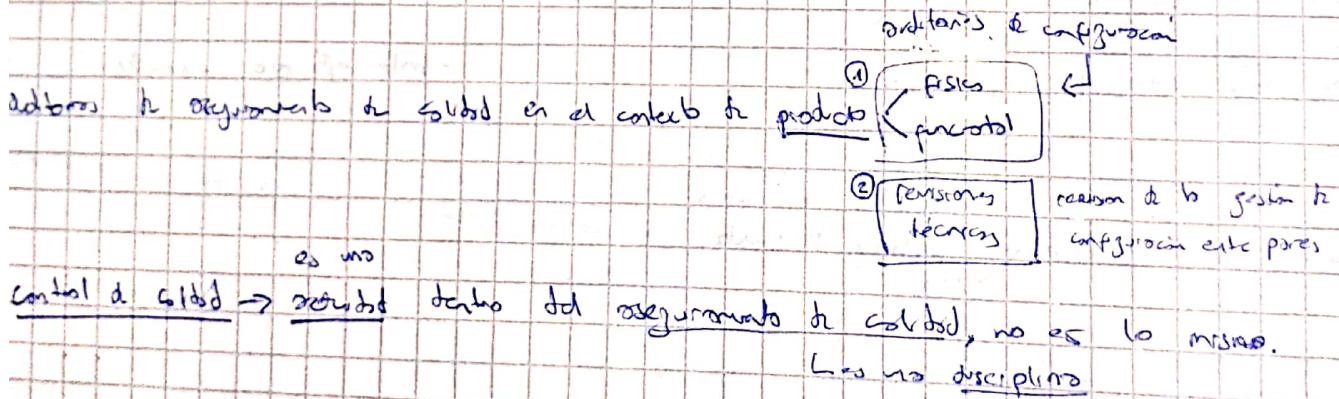 auditorías de configuración
① física
auditorías de aseguramiento de calidad en el contexto de producto
funcional
② revisiones revisión de la gestión de
técnicas configuración entre pares
es una
control de calidad → actividad dentro del aseguramiento de calidad, no es lo mismo.
es una disciplina